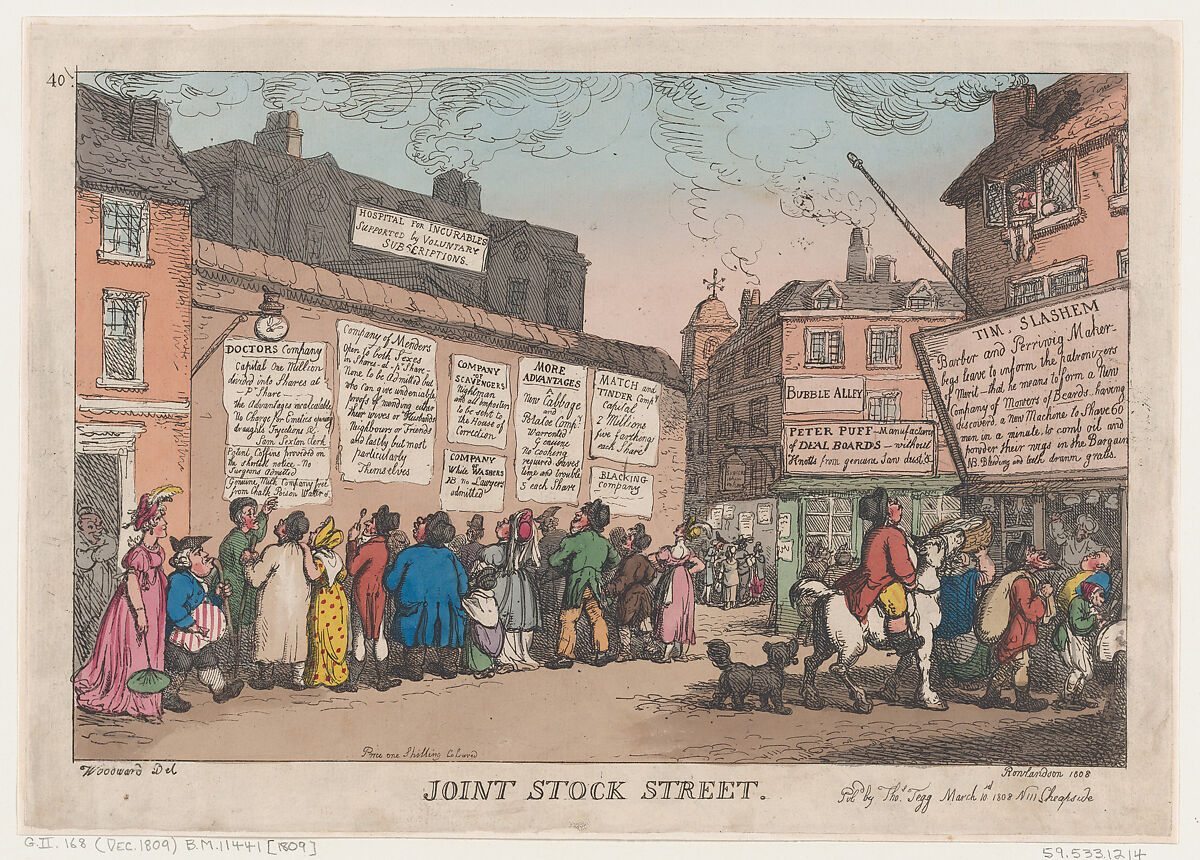 40
HOSPITAL FOR INCURABLES
SUPPORTED by VOLUNTARY
SUBSCRIPTIONS.
DOCTORS Company
Capital One Million
divided into Shares at
Pr Share —
the Advantages incalculable
No Charge for Emetics opening
draughts Injections &c
Sam Sexton Clerk
Patent Coffins provided on
the shortest notice - No
Surgeons Admitted
Genuine Milk Company free
from Chalk Poison Water &c
Company of Menders
Open to both Sexes
in Shares - at - Pr Share -
None to be Admitted but
who can give undeniable
proofs of mending either
their wives or Husbands
Neighbours or Friends
and lastly but most
particularly
Themselves
COMPANY
of
SCAVENGERS
Nightman
and all imposters
to be sent to
the House of
Correction
COMPANY
of
White WASHERS
NB no Lawyers
admitted
MORE
ADVANTAGES
New Cabbage
and
Potatoe Compy
Warrented
Genuine
No Cooking
required saves
time and trouble
5 each Share
MATCH and
TINDER Compy
Capital
2 Millions
five farthings
each Share
BLACKING
Company
BUBBLE ALLEY
PETER PUFF - Manufactory
of DEAL BOARDS - without
Knotts from genuine Saw dust.
TIM. SLASHEM
Barber and Perriwig Maker -
begs leave to inform the patronizers
of Merit - that he means to form a New
Company of Mowers of Beards having
discoverd a New Machine to Shave 60
men in a minute, to comb oil and
powder their wigs in the Bargain
NB. Bleeding and teeth drawn gratis.
Price one Shilling Coloured
Woodward Del
Rowlandson 1808
JOINT STOCK STREET.
Pubd by Thos Tegg March 10 1808 N 111 Cheapside
G.II. 168 (DEC. 1809) B.M. 11441 [1809]
59.533.1214